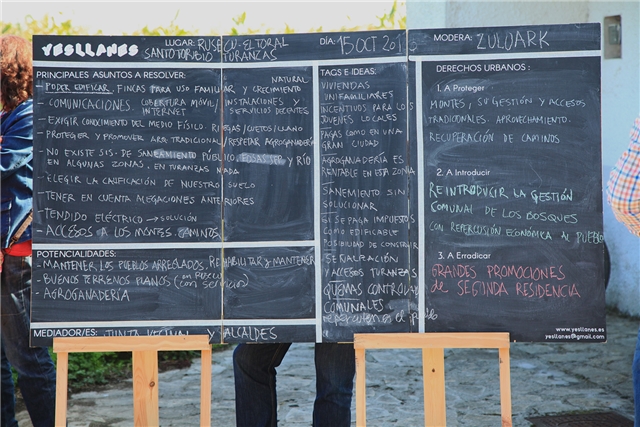 YESLLANES
LUGAR: RUSECU-ELTORAL
SANTO TORIBIO TURANZAS
DÍA: 15 OCT
MODERA: ZULOARK
PRINCIPALES ASUNTOS A RESOLVER:
- PODER EDIFICAR, FINCAS PARA USO FAMILIAR Y CRECIMIENTO NATURAL
- COMUNICACIONES. COBERTURA MÓVIL/INTERNET INSTALACIONES Y SERVICIOS DECENTES.
- EXIGIR CONOCIMIENTO DEL MEDIO FÍSICO. RIEGAS/CUETOS/LLANO
- PROTEGER Y PROMOVER ARQ. TRADICIONAL/RESPETAR AGROGANADERÍA
- NO EXISTE SIS. DE SANEAMIENTO PÚBLICO. Y RÍO
EN ALGUNAS ZONAS. EN TURANZAS NADA
- ELEGIR LA CALIFICACIÓN DE NUESTRO SUELO
- TENER EN CUENTA ALEGACIONES ANTERIORES
- TENDIDO ELÉCTRICO → SOLUCIÓN
- ACCESOS A LOS MONTES. CAMINOS
POTENCIALIDADES:
- MANTENER LOS PUEBLOS ARREGLADOS. REHABILITAR Y MANTENER
- BUENOS TERRENOS PLANOS (con servicio)
- AGROGANADERÍA
MEDIADOR/ES: JUNTA VECINAL Y ALCALDES
TAGS E IDEAS:
VIVIENDAS
UNIFAMILIARES
INCENTIVOS PARA LOS
JÓVENES LOCALES
PAGAS COMO EN UNA
GRAN CIUDAD
AGROGANADERÍA ES
RENTABLE EN ESTA ZONA
SANEMIENTO SIN
SOLUCIONAR
SI SE PAGA IMPUESTOS
COMO EDIFICABLE
POSIBILIDAD DE CONSTRUIR
SEÑALIZACIÓN
Y ACCESOS TURANZAS
QUEMAS CONTROLAR
COMUNALES
DERECHOS URBANOS:
1. A Proteger
MONTES, SU GESTIÓN Y ACCESOS
TRADICIONALES. APROVECHAMIENTO.
RECUPERACIÓN DE CAMINOS
2. A Introducir
REINTRODUCIR LA GESTIÓN
COMUNAL DE LOS BOSQUES
CON REPERCUSIÓN ECONÓMICA AL PUEBLO
3. A Erradicar
GRANDES PROMOCIONES
de SEGUNDA RESIDENCIA
www.yesllanes.es
yesllanes@gmail.com